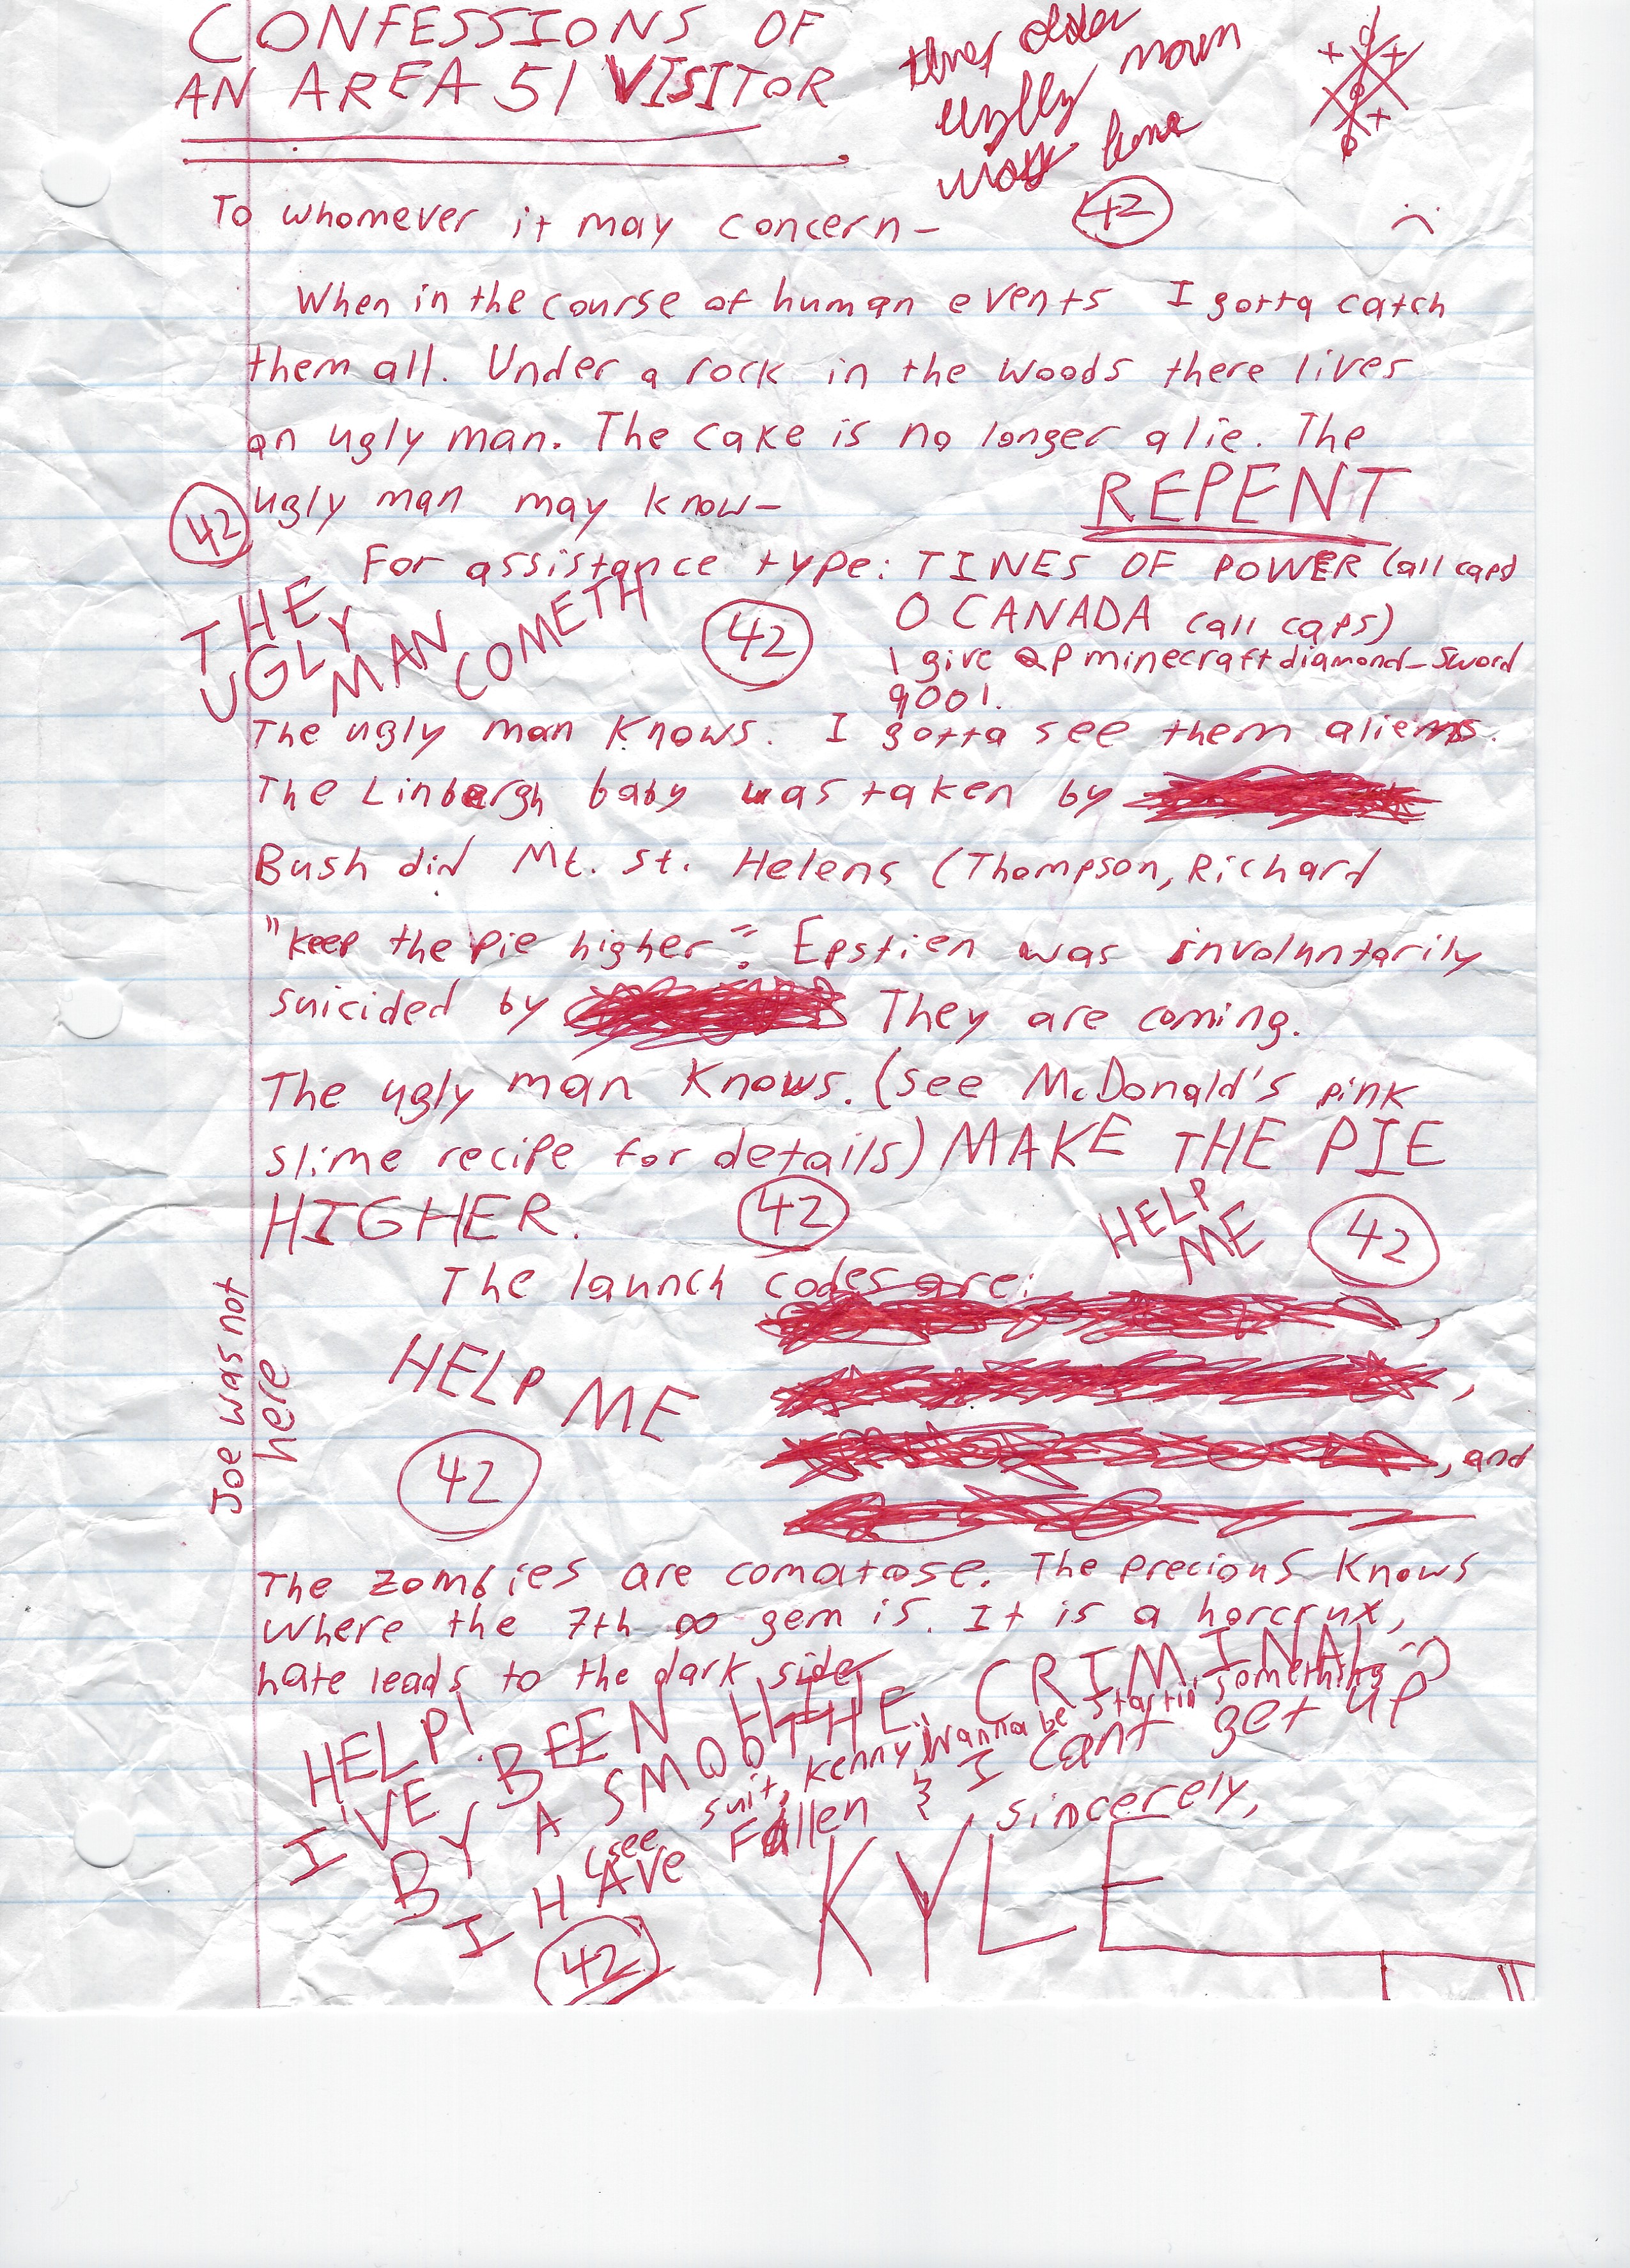 CONFESSIONS OF
AN AREA 51 VISITOR
42
To whomever it may concern-
When in the course of human events I gotta catch
them all. Under a rock in the woods there lives
an ugly man. The cake is no longer a lie. The
ugly man may know-
REPENT
42
For assistance type: TINES OF POWER (all caps)
O CANADA (all caps)
\ give @p minecraft diamond_sword
9001.
THE
UGLY
MAN COMETH
42
The ugly man knows. I gotta see them aliens.
The Linbergh baby was taken by
Bush did Mt. St. Helens (Thompson, Richard
"keep the pie higher". Epstien was involuntarily
suicided by They are coming.
The ugly man knows. (see McDonald's pink
slime recipe for details) MAKE THE PIE
HIGHER.
42
HELP
ME
42
The launch codes are:
,
HELP ME
,
42
, and
Joe was not
here
The zombies are comatose. The precious knows
where the 7th ∞ gem is. It is a horcrux,
hate leads to the dark side
HELP!
I'VE BEEN HIT
BY A SMOOTHE CRIMINAL
(see suit, Kenny Wanna be startin something)
I HAVE Fallen & I cant get up
42
sincerely,
KYLE